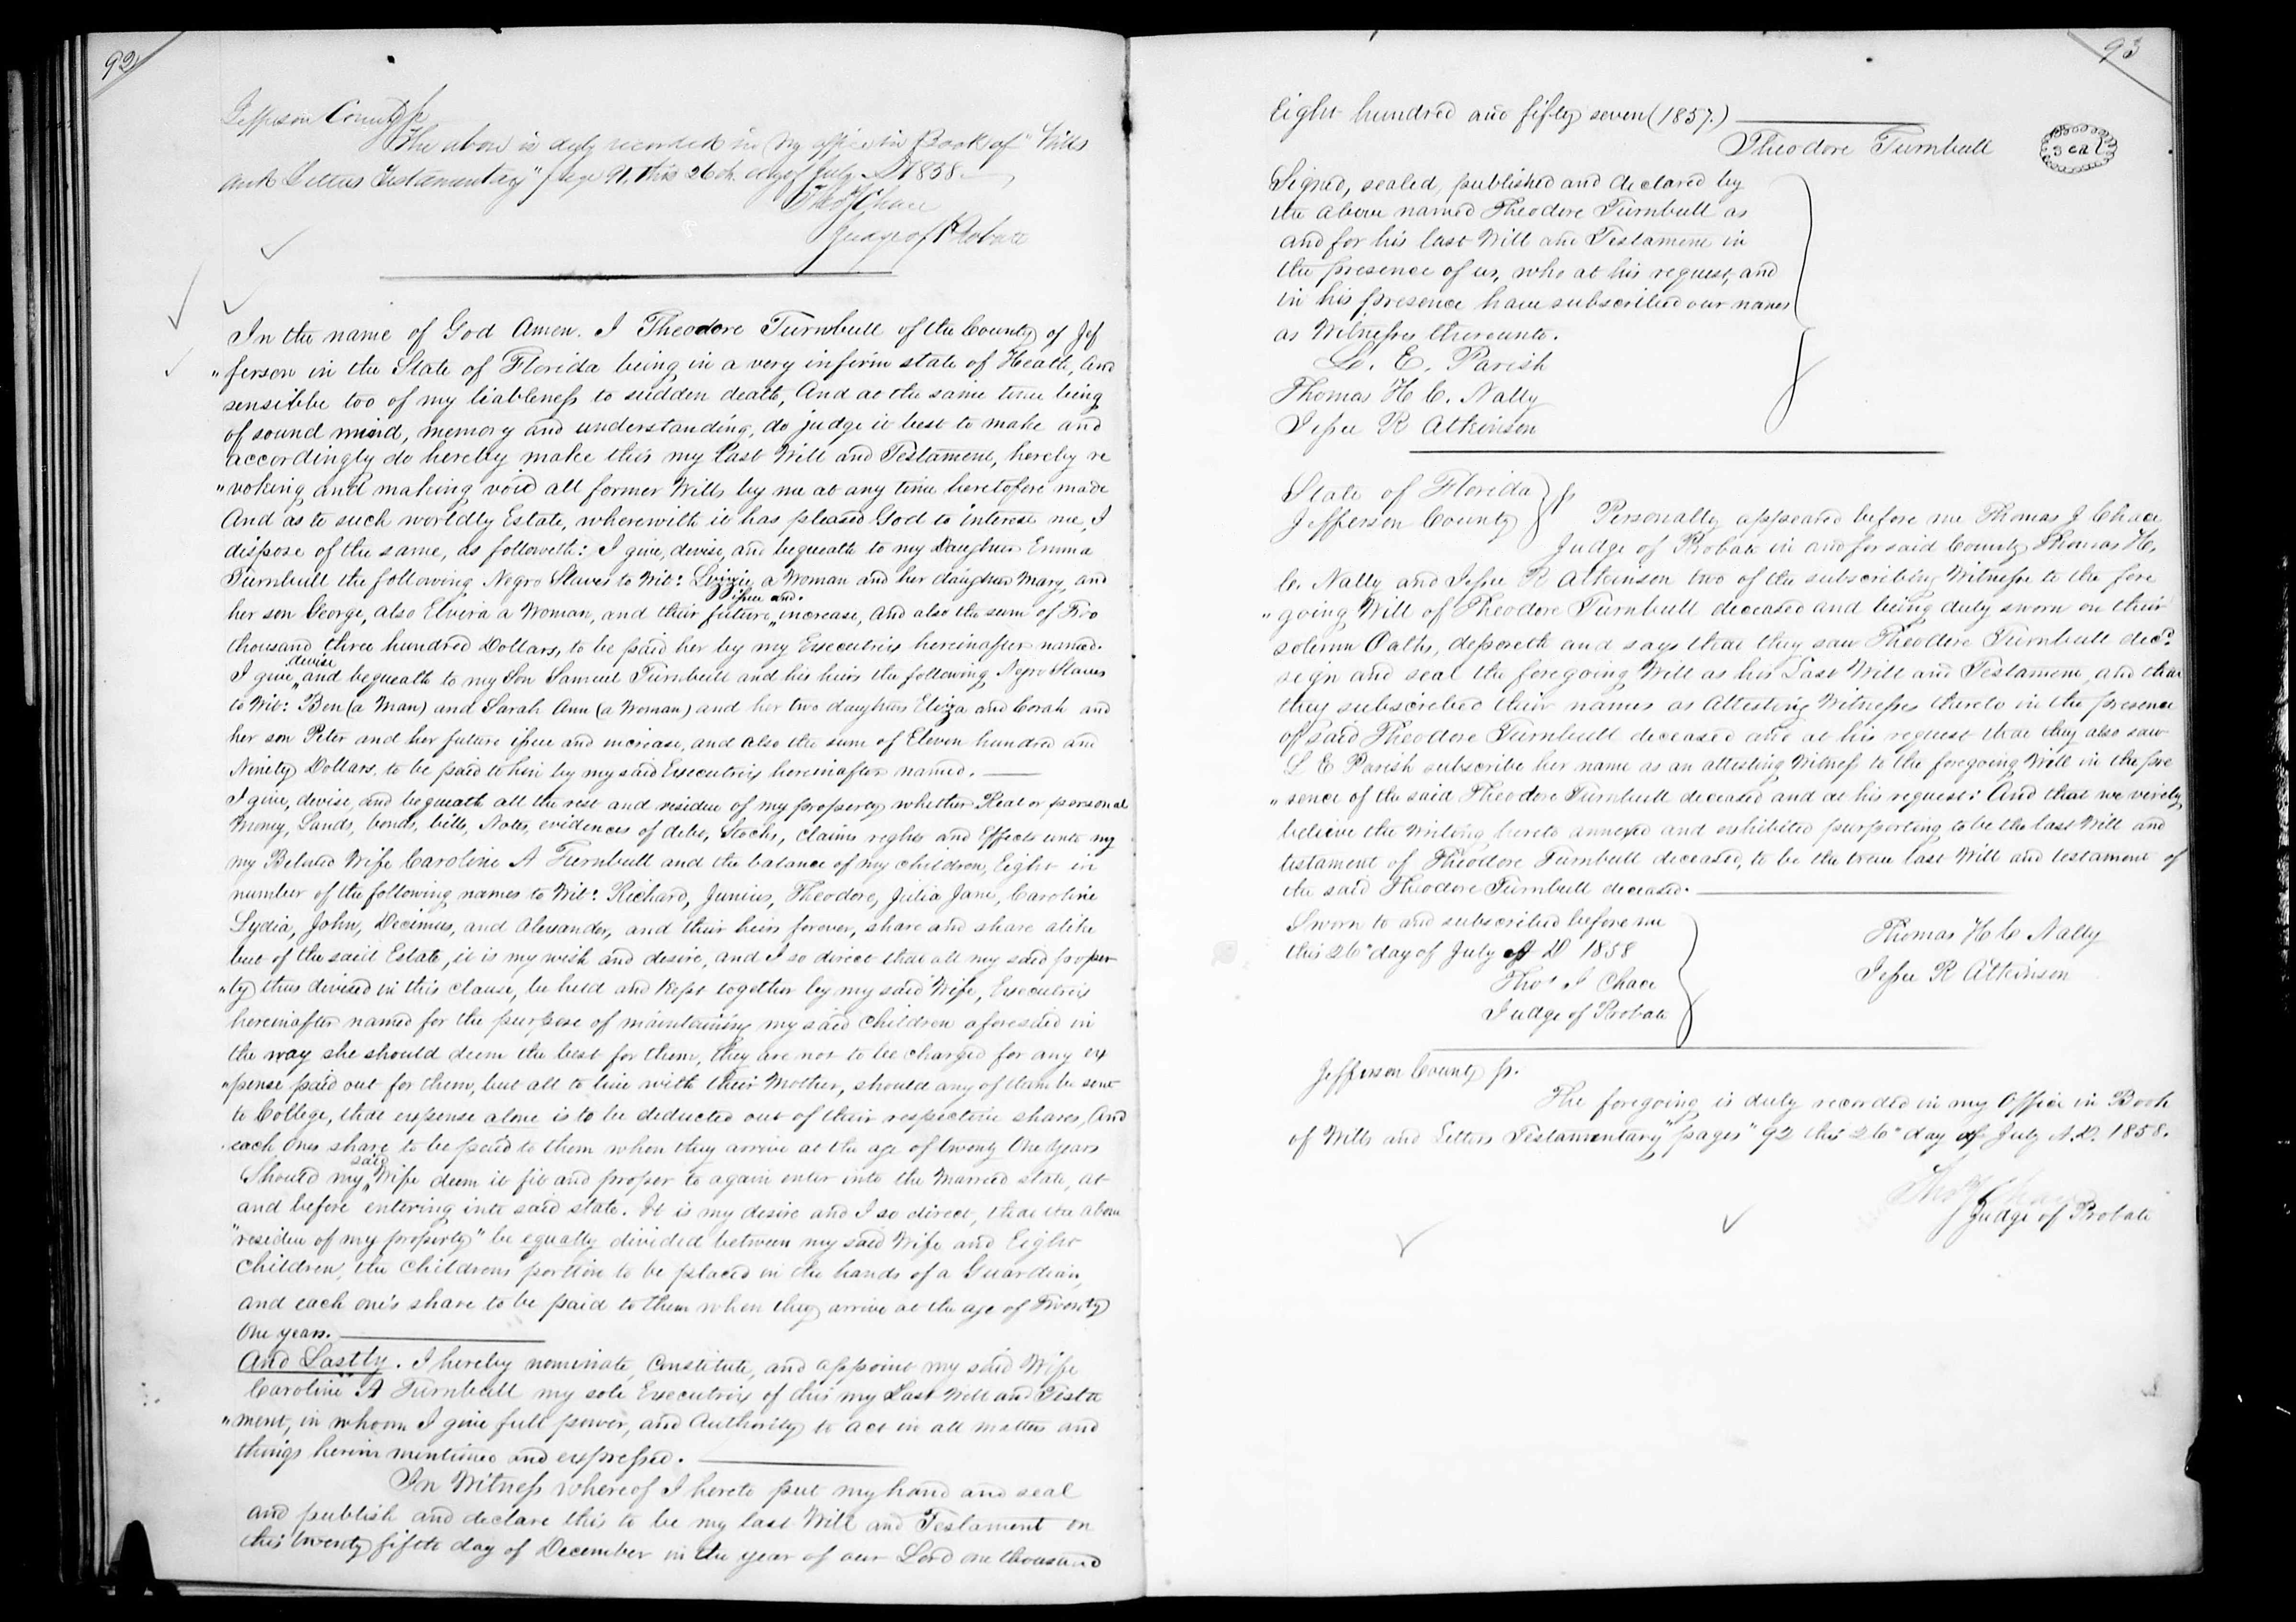 92
Jefferson County ss
The above is duly recorded in my office in Book of "Wills
and Letters Testamentary" page 91, this 26th day of July AD 1858
Thos J Chace
Judge of Probate
In the name of God Amen. I Theodore Turnbull of the County of Jef
"ferson in the State of Florida being in a very infirm state of Health, and
sensible too of my liableness to sudden death, And at the same time being
of sound mind, memory and understanding, do judge it best to make and
accordingly do hereby make this my Last Will and Testament, hereby re
"voking and making void all former Wills by me at any time heretofore made
And as to such worldly Estate, wherewith it has pleased God to interest me, I
dispose of the same, as followeth: I give, devise, and bequeath to my Daughter Emma
Turnbull the following Negro Slaves to Wit: Lizzie a Woman and her daughter Mary, and
her son George, also Elvira a Woman, and their future issue and increase, And also the sum of Two
thousand three hundred Dollars, to be paid her by my Executrix hereinafter named.
I give, devise and bequeath to my Son Samuel Turnbull and his heirs the following Negro Slaves
to Wit: Ben (a Man) and Sarah Ann (a Woman) and her two daughters Eliza and Corah and
her son Peter and her future issue and increase, and also the sum of Eleven hundred and
Ninety Dollars, to be paid to him by my said Executrix hereinafter named.
I give, devise, and bequeath all the rest and residue of my property whether Real or personal
Money, Lands, bonds, bills, Notes, evidences of debt, Stocks, claims rights and Effects unto my
my Beloved Wife Caroline A Turnbull and the balance of my children, Eight in
number of the following names to Wit: Richard, Junius, Theodore, Julia Jane, Caroline
Lydia, John, Decimus, and Alexander, and their heirs forever, share and share alike
but of the said Estate, it is my wish and desire, and I so direct that all my said proper
"ty thus devised in this clause, be held and kept together by my said Wife, Executrix
hereinafter named for the purpose of maintaining my said children aforesaid in
the way she should deem the best for them, they are not to be charged for any ex
"pense paid out for them, but all to live with their Mother, should any of them be sent
to College, that expense alone is to be deducted out of their respective shares, And
each ones share to be paid to them when they arrive at the age of twenty One Years
Should my said Wife deem it fit and proper to again enter into the Married state, at
and before entering into said state. It is my desire and I so direct, that the above
"residue of my property" be equally divided between my said Wife and Eight
Children, the Childrens portion to be placed in the hands of a Guardian,
and each one's share to be paid to them when they arrive at the age of Twenty
One years.
And Lastly. I hereby nominate, Constitute, and appoint my said Wife
Caroline A Turnbull my sole Executrix of this my Last Will and Testa
"ment, in whom I give full power, and Authority to act in all matters and
things herein mentioned and expressed.
In Witness whereof I hereto put my hand and seal
and publish and declare this to be my last Will and Testament on
this twenty fifth day of December in the year of our Lord one thousand
93
Eight hundred and fifty seven (1857.)
Theodore Turnbull
Seal
Signed, sealed, published and declared by
the above named Theodore Turnbull as
and for his last Will and Testament in
the presence of us, who at his request, and
in his presence have subscribed our names
as Witnesses thereunto.
L. E. Parish
Thomas H C. Nally
Jesse R Atkinson
State of Florida
Jefferson County ss
Personally appeared before me Thomas J Chace
Judge of Probate in and for said County Thomas H.
C. Nally and Jesse R Atkinson two of the subscribing Witnesses to the fore
"going Will of Theodore Turnbull deceased and being duly sworn on their
solemn Oaths, deposeth and says that they saw Theodore Turnbull decd
sign and seal the foregoing Will as his Last Will and Testament, and that
they subscribed their names as Attesting Witnesses thereto in the presence
of said Theodore Turnbull deceased and at his request that they also saw
L E Parish subscribe her name as an attesting Witness to the foregoing Will in the pre
"sence of the said Theodore Turnbull deceased and at his request: And that we verily
believe the writing hereto annexed and exhibited purporting to be the last Will and
testament of Theodore Turnbull deceased, to be the true last Will and testament of
the said Theodore Turnbull deceased.
Sworn to and subscribed before me
this 26" day of July A D 1858
Thos J Chace
Judge of Probate
Thomas H C Nally
Jesse R Atkinson
Jefferson County ss.
The foregoing is duly recorded in my Office in Book
of Wills and Letters Testamentary "pages" 92 this 26" day of July A.D. 1858.
Thos J Chace
Judge of Probate